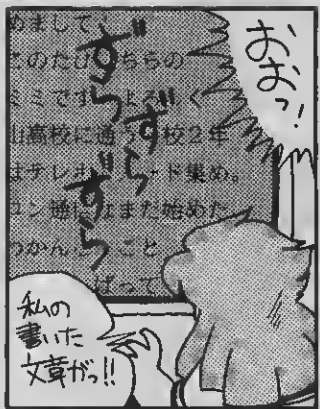 おおっ!
ずらずらずら
めまして
このたび ちちの
ミミです よろ く
山高校に通う 校2年
はテレホ ード集め。
コン通 なまだ始めた
わかん こと
ばって
私の
書いた
文章がっ!!